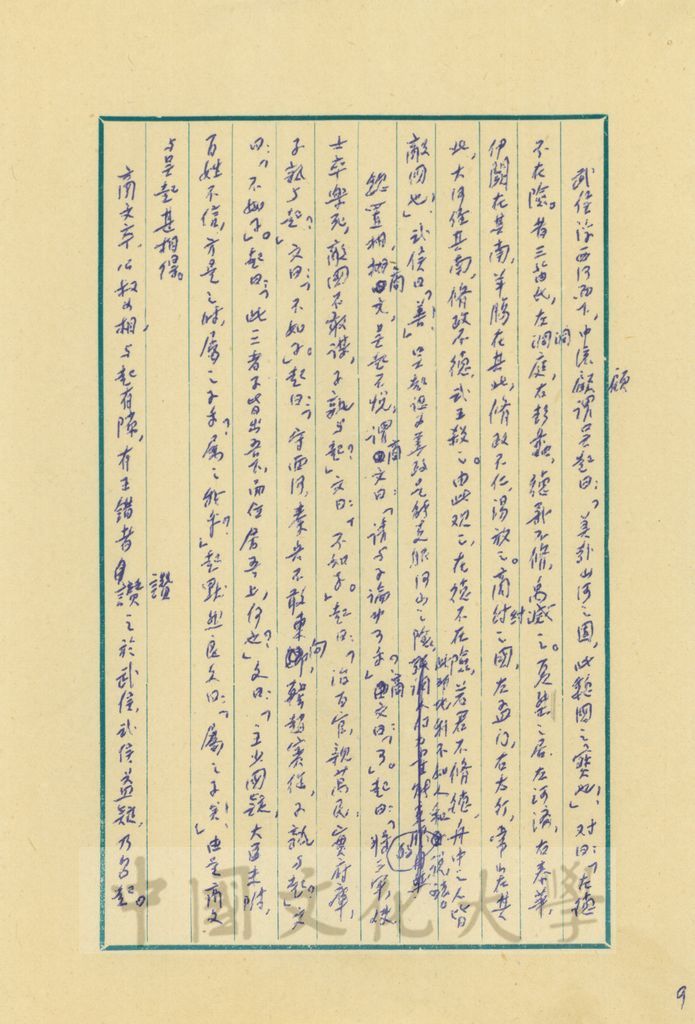 顧
武侯浮西河而下,中流顧謂吳起曰:「美哉山河之固,此魏國之寶也!」对曰:「在德
不在險。昔三苗氏,左洞庭,右彭蠡,德義不修,禹滅之。夏桀之居,左河濟,右泰華,
洞
伊闕在其南,羊腸在其北,修政不仁,湯放之。商紂之國,左孟门,右太行,常山在其
紂
北,大河经其南,修政不德,武王殺之。由此观之,在德不在險,若君不修德,舟中之人皆
敵國也」,武侯曰:「善!」
此即地利不如人和
您置相,相商文,吳起不悦,謂商文曰:「请与子論功可乎?」商文曰:「可」。起曰:「将三軍,使
士卒樂死,敵國不敢謀,子孰与起?」文曰:「不如子。」起曰:「治百官,親萬民,實府庫,
子孰与起?」文曰:「不如子」。起曰:「守西河,秦兵不敢東向,韓趙賓從,子孰与起?」文
曰:「不如子」。起曰:「此三者子皆出吾下,而位居吾上,何也?」文曰:「主少國疑,大臣未附,
百姓不信,方是之时,屬之子乎?屬之我乎?」起默然良久曰:「屬之子矣!」由是商文
与吳起甚相得。
商文卒,公叔为相,与起有隙,有王錯者譖之於武侯,武侯益疑,乃召起。
譖
中國文化大學
9